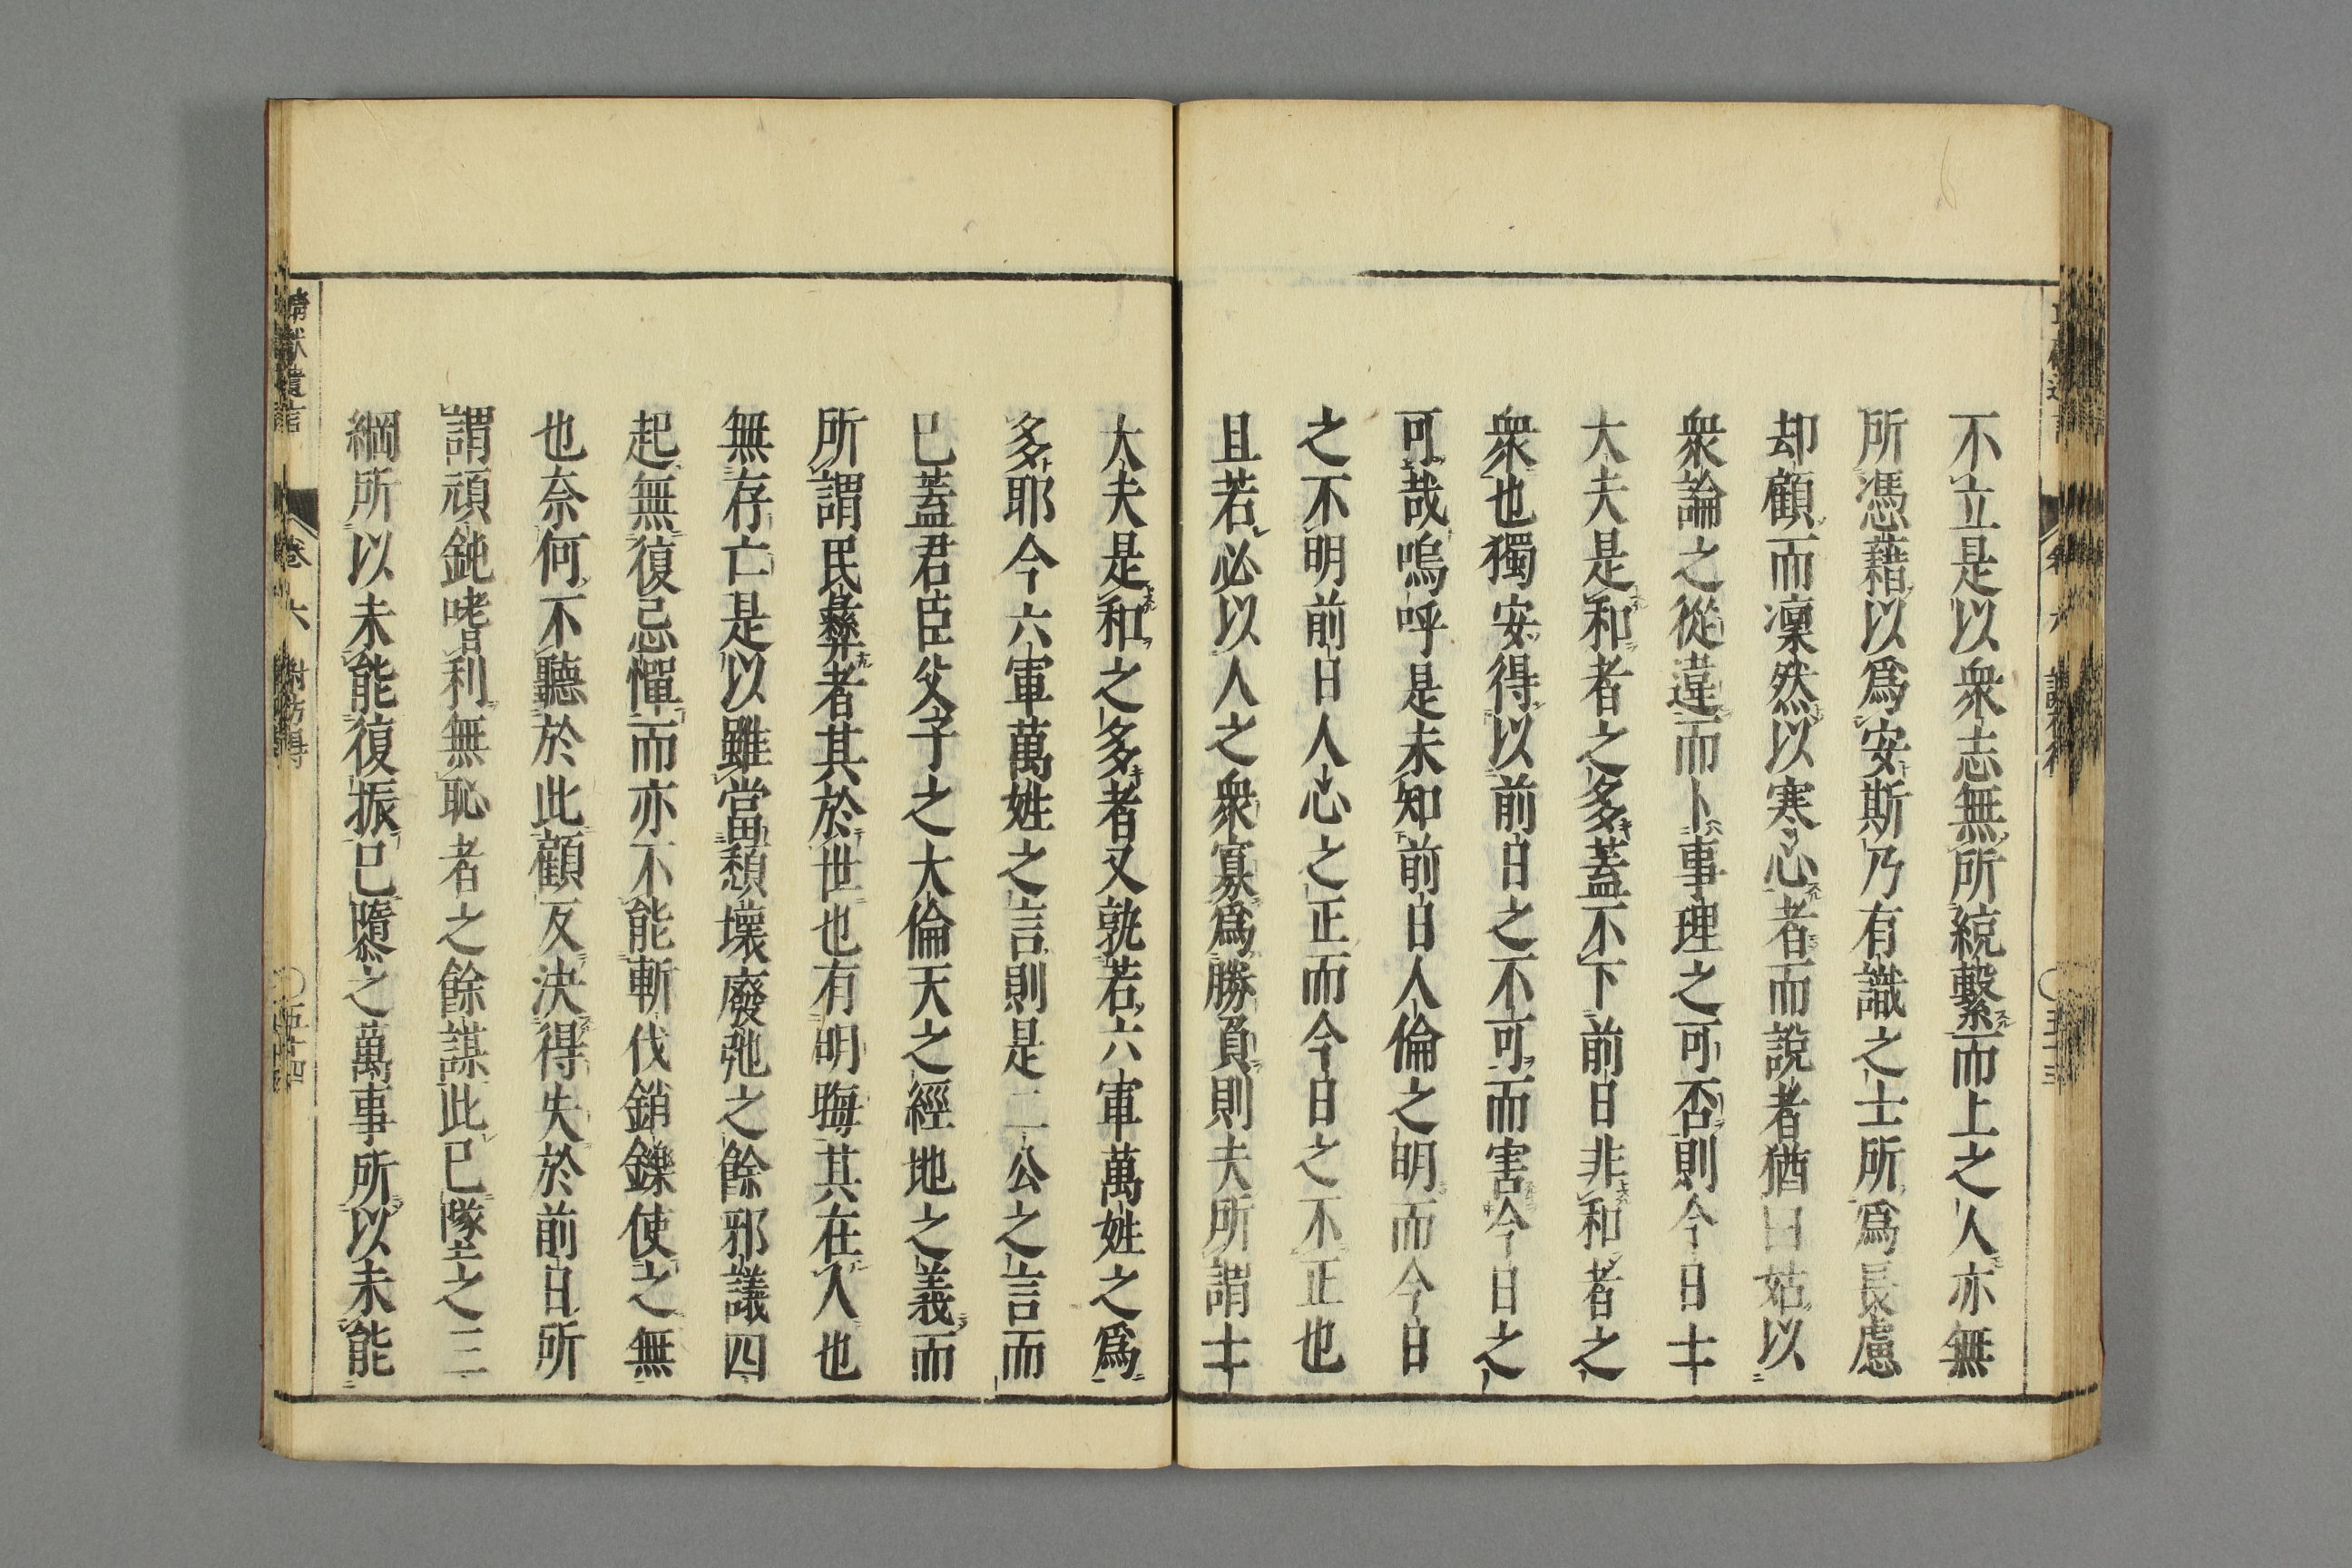 不立是以衆志無所統繫而上之人亦無
所憑藉以爲安斯乃有識之士所爲長慮
却顧而凜然以寒心者而說者猶曰姑以
衆論之從違而卜事理之可否則今日士
大夫是和者之多蓋不下前日非和者之
衆也獨安得以前日之不可而害今日之
可哉嗚呼是未知前日人倫之明而今日
之不明前日人心之正而今日之不正也
且若必以人之衆寡爲勝負則夫所謂士
大夫是和之多者又孰若六軍萬姓之爲
多耶今六軍萬姓之言則是二公之言而
已蓋君臣父子之大倫天之經地之義而
所謂民彝者其於世也有明晦其在人也
無存亡是以雖當頽壞廢弛之餘邪議四
起無復忌憚而亦不能斬伐銷鑠使之無
也奈何不聽於此顧反決得失於前日所
謂頑鈍嗜利無恥者之餘謀此已墜之三
綱所以未能復振已隳之萬事所以未能
靖獻遺言 卷六 謝枋得 〇五十四